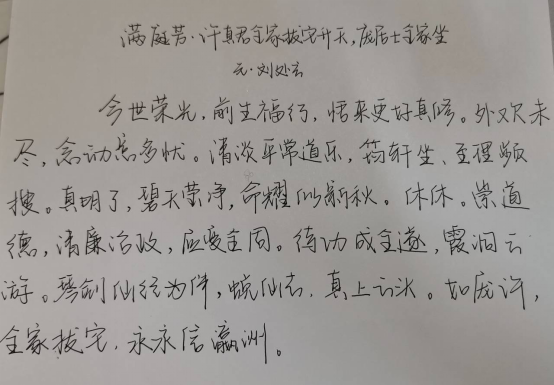 满庭芳·许真君全家拔宅升天,庞居士全家坐
元·刘处玄
今世荣光,前生福行,悟来更好真修。外欢未
尽,念动忧。清淡平常道乐,筠轩坐、至理频
搜。真明了,碧天莹净,命耀似新秋。休休。崇道
德,清廉治政,全同。待功成全遂,霞洞云
游。琴剑仙经为伴,蜕仙去,真上头。如庞许,
全家拔宅,永永住瀛洲。